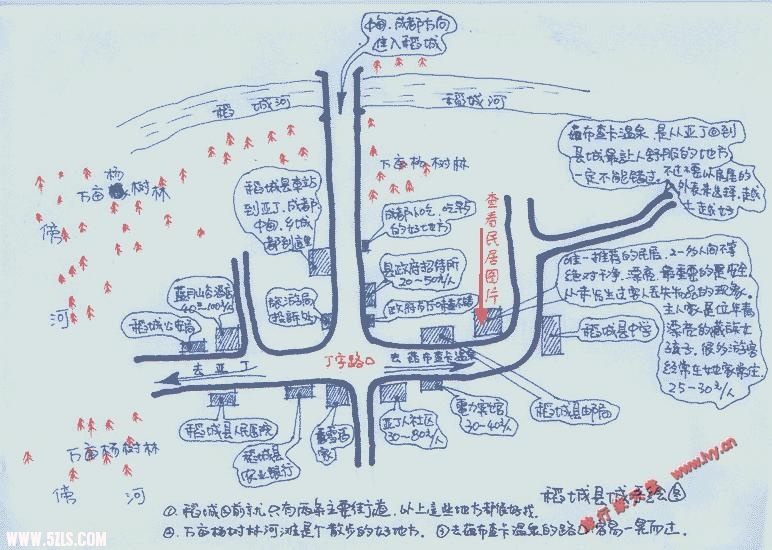 中甸、成都方向
进入稻城
稻城河
稻城河
杨
万亩树林
傍
河
万亩杨树林
稻城县车站
到亚丁、成都
中甸、乡城
都到这里
成都小吃、吃早点
的好地方
县政府招待所
20~50元/人
旅游局
投诉处
蓝月山谷酒店
40~100元/人
稻城公安局
茹布查卡温泉、是从亚丁回到
县城最让人舒服的地方,
一定不能错过。不过要以房屋的
外表来选择,越
去越好
查看民居图片
唯一推荐的民居,2~多人间不等
绝对干净、漂亮、最重要的是安全
从未发生过客人丢失物品的现象。
主人家是位年青
漂亮的藏族女
孩子,很多游客
经常在她家常住
25-30元/人
稻城县中学
丁字路口
去亚丁
去茹布查卡温泉
稻城县人民医院
稻城县
农业银行
亚丁人社区
30~80元/人
电力宾馆
30~40元/人
稻城县邮局
万亩杨树林
傍 河
稻城县城示绘图
①、稻城目前就只有两条主要街道,以上这些地方都很好找。
②、万亩杨树林河滩是个散步的好地方。③去茹布查卡温泉的路
www.lvy.cn
WWW.5ZLS.COM